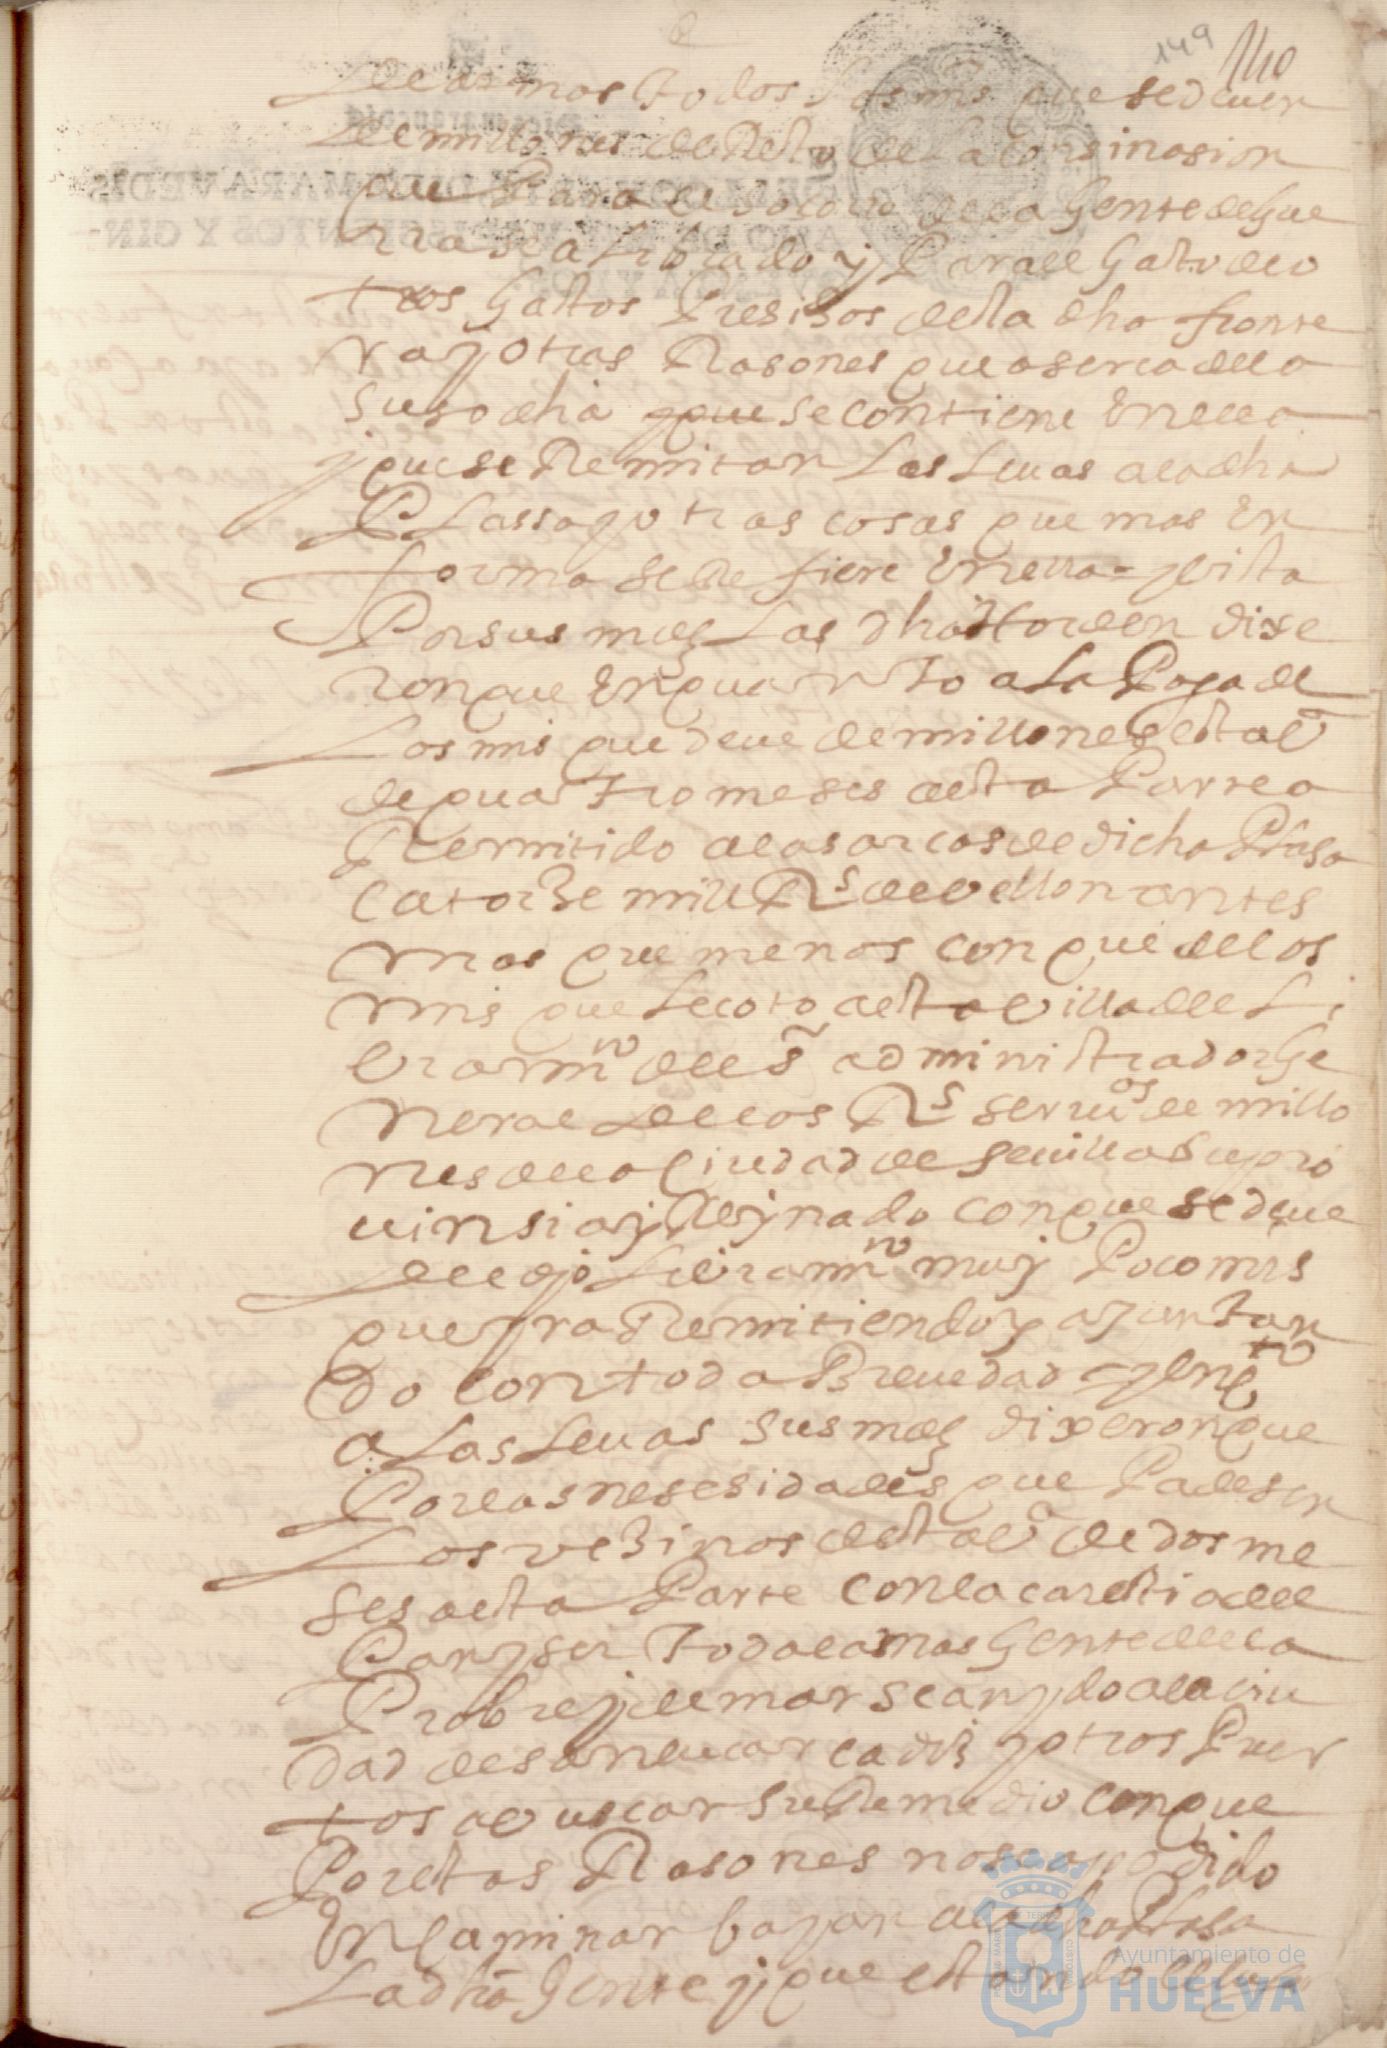 149 140
de armas todos los mrs que se deuen
de millones de Resto de la consinasion
que Para el socorro de la Gente de Gue
rra se a librado y Para el Gasto de o
tros Gastos Presisos desta dha fronte
ra y otras Rasones que aserca de lo
suso dho que se contiene En ella
y que se Remitan Las Leuas a la dha
Plassa y otras cosas que mas En
forma se Refiere En ella = y vista
Por sus mds Las dha orden dixe
ron que En quanto a La Paga de
Los mrs que deue de millones esta Va
de quatro meses desta Parte a
Remitido a las arcas de dicha Plasa
Catorze mill Rs de vellon antes
mas que menos con que de los
mrs que le coto a esta villa de Li
bramto del Sr administrador Ge
neral de los Rs seruios de millo
nes de la Ciudad de Seuilla Su pro
uinsia y Reynado con que se deue
de ejo Libramto muy Poco mrs
que yra Remitiendo y ajuntan
do con toda Breuedad = y En qto
a Las Leuas Sus mds dixeron que
Por las nesesidades que Padesen
Los vezinos desta Va de dos me
ses a esta Parte con la carestia del
Pan y ser toda la mas Gente della
Probre y de mar se an ydo a la ciu
dad de sanlucar cadis y otros Puer
tos a buscar su Remedio con que
Por estas Rasones no se a podido
Encaminar bayan a la dha Plasa
La dha Gente y que estando
Ayuntamiento de
HUELVA